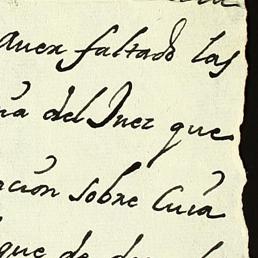 auer faltado las
na del Juez que
ación sobre Cuia
que de